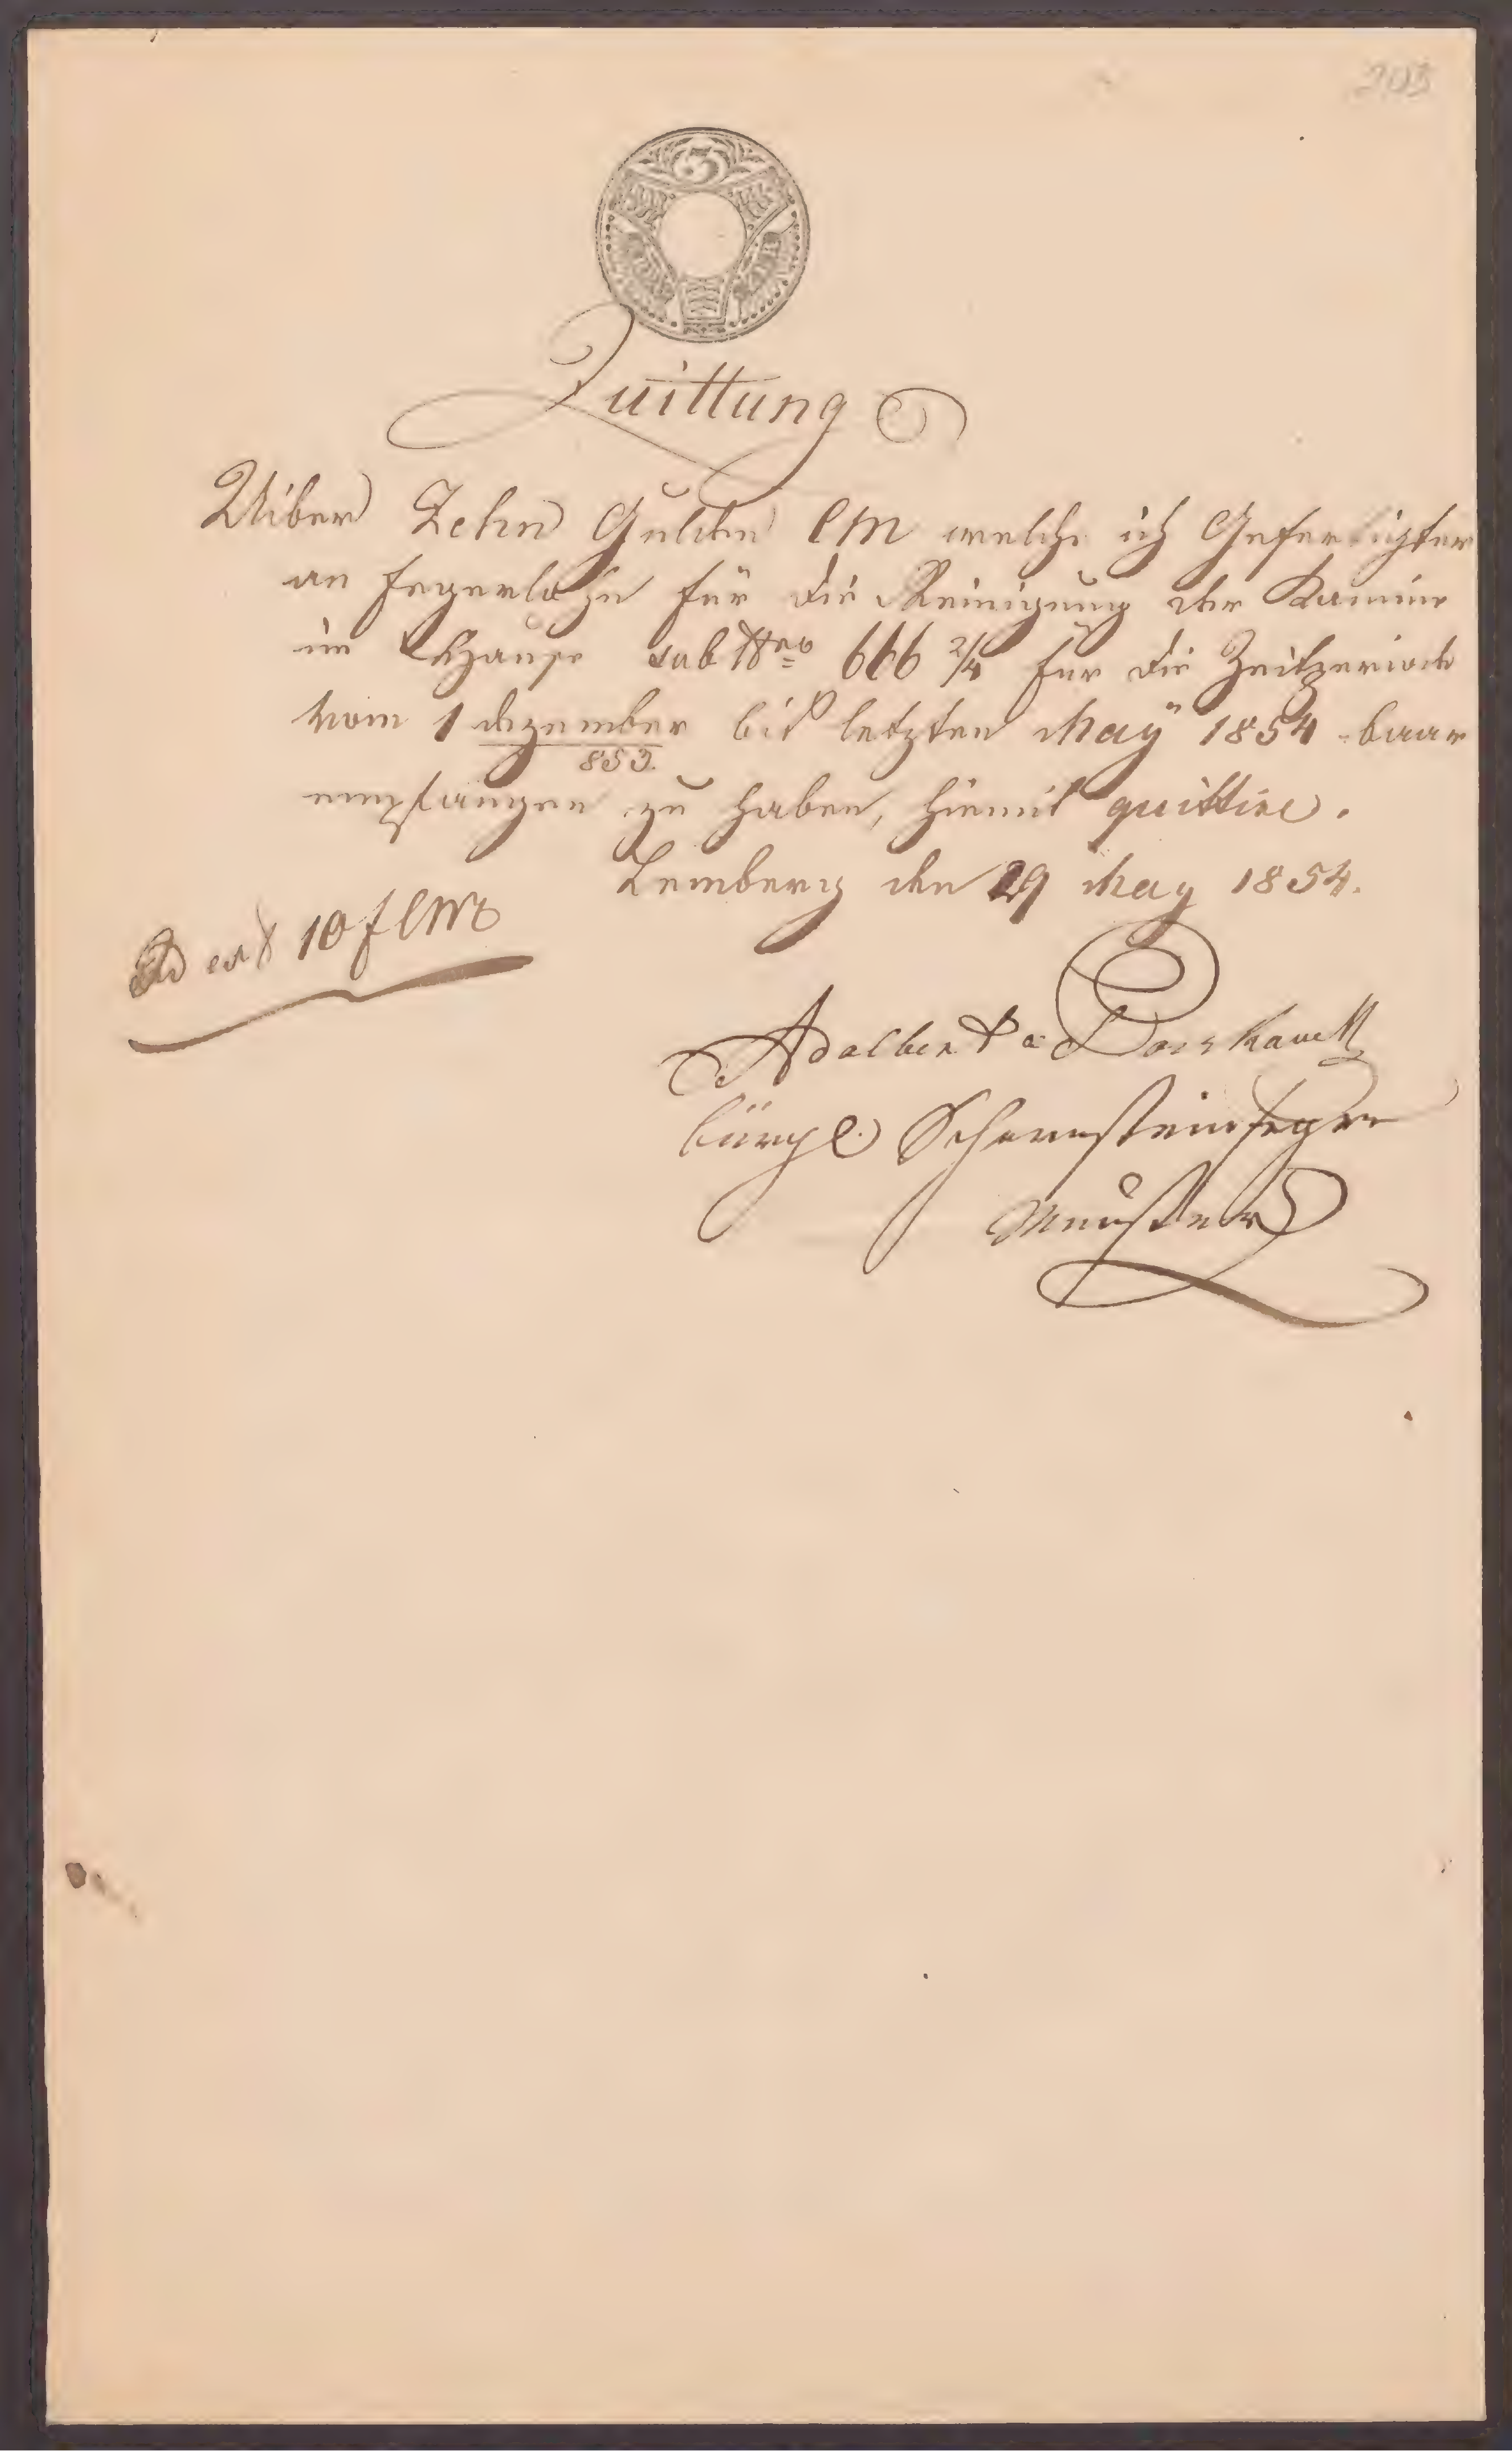 203
3
Quittung
Uiber Zehn Gulden CM welche ich Gefertigter
an Fegerlohn für die Reinigung der Kamine
im Hause sub Nro 666 2/4 für die Zeitperiode
vom 1 Dezember 853. bis letzten May 1854 baar
empfangen zu haben, hiemit quittire.
Lemberg den 29 May 1854.
Id est 10 f CMz
Adalbert
bürgl. Schornsteinfeger
Meister